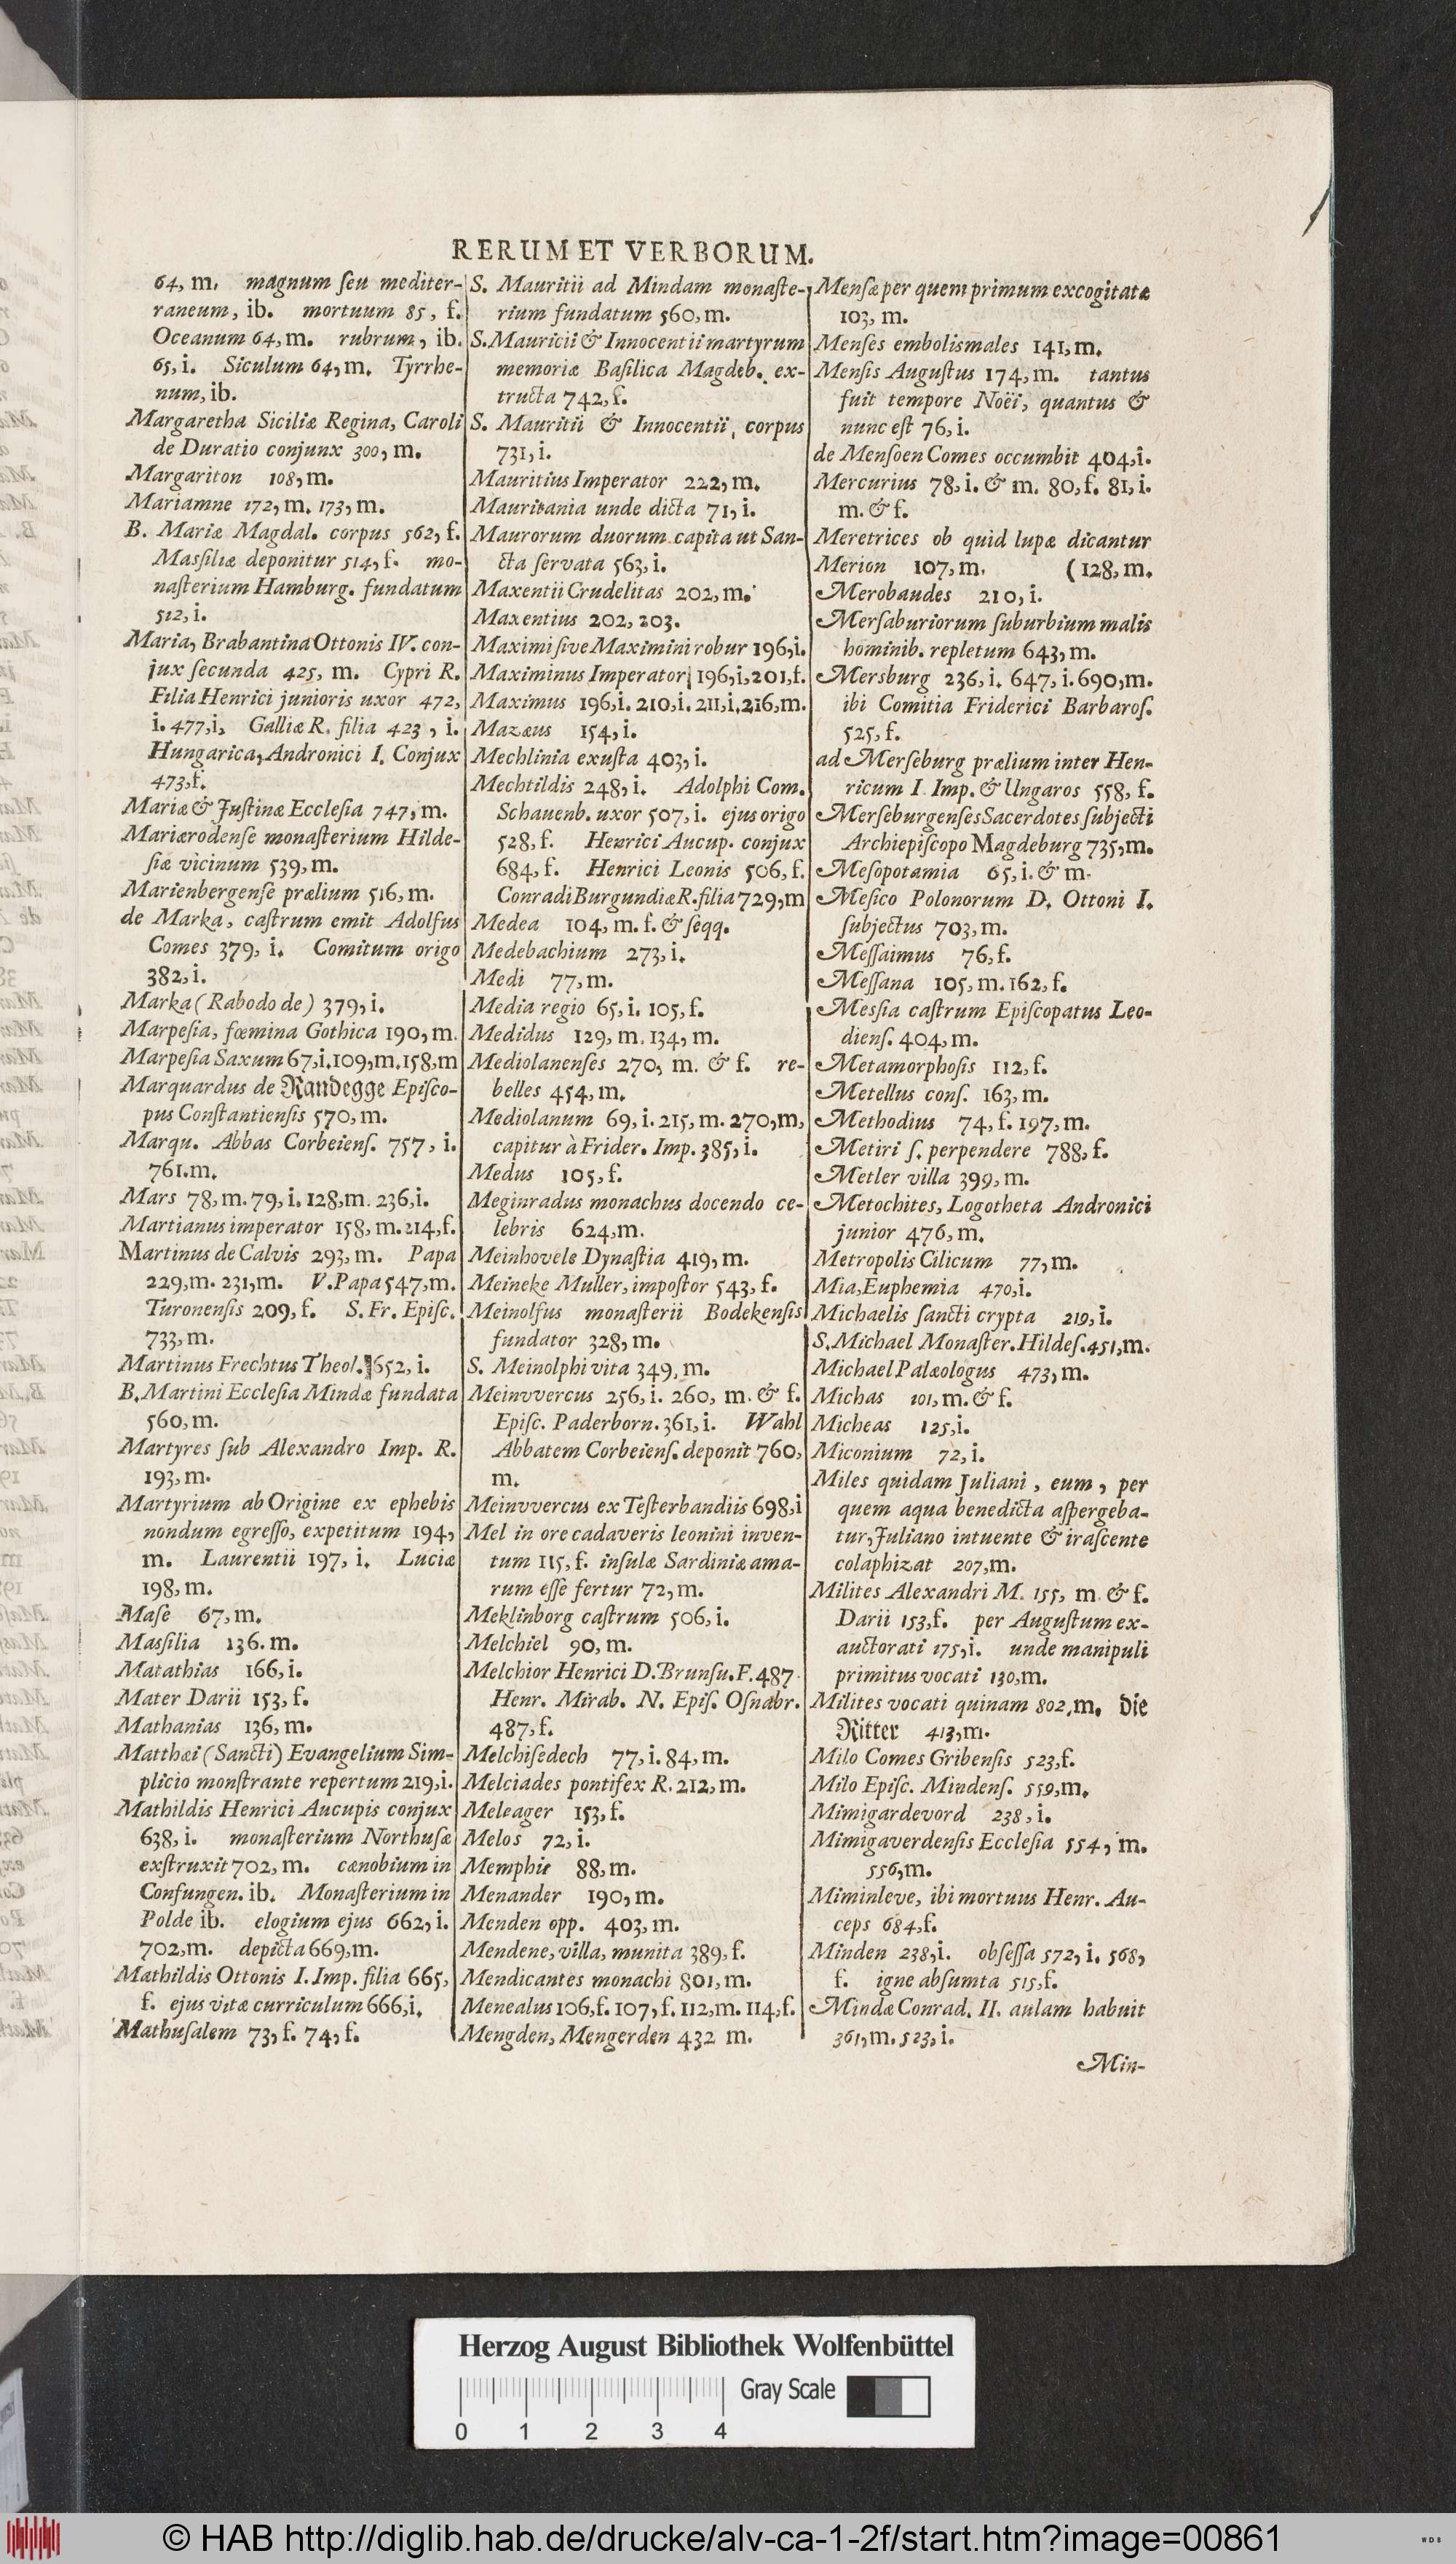 RERUM ET VERBORUM.
64, m. magnum ſeu mediter-
raneum, ib. mortuum 85, f.
Oceanum 64, m. rubrum, ib.
65, i. Siculum 64, m. Tyrrhe-
num, ib.
Margaretha Siciliæ Regina, Caroli
de Duratio conjunx 300, m.
Margariton 108, m.
Mariamne 172, m. 173, m.
B. Mariæ Magdal. corpus 562, f.
Maſſiliæ deponitur 514, f. mo-
naſterium Hamburg. fundatum
512, i.
Maria, Brabantina Ottonis IV. con-
jux ſecunda 425, m. Cypri R.
Filia Henrici junioris uxor 472,
i. 477, i. Galliæ R. filia 423, i.
Hungarica, Andronici I. Conjux
473, f.
Mariæ & Juſtinæ Eccleſia 747, m.
Mariærodenſe monaſterium Hilde-
ſiæ vicinum 539, m.
Marienbergenſe prælium 516, m.
de Marka, caſtrum emit Adolfus
Comes 379, i. Comitum origo
382, i.
Marka (Rabodo de) 379, i.
Marpeſia, fœmina Gothica 190, m.
Marpeſia Saxum 67, i. 109, m. 158, m
Marquardus de Randegge Epiſco-
pus Conſtantienſis 570, m.
Marqu. Abbas Corbeienſ. 757, i.
761. m.
Mars 78, m. 79, i. 128, m. 236, i.
Martianus imperator 158, m. 214, f.
Martinus de Calvis 293, m. Papa
229, m. 231, m. V. Papa 547, m.
Turonenſis 209, f. S. Fr. Epiſc.
733, m.
Martinus Frechtus Theol. 652, i.
B. Martini Eccleſia Mindæ fundata
560, m.
Martyres ſub Alexandro Imp. R.
193, m.
Martyrium ab Origine ex ephebis
nondum egreſſo, expetitum 194,
m. Laurentii 197, i. Luciæ
198, m.
Maſe 67, m.
Maſſilia 136. m.
Matathias 166, i.
Mater Darii 153, f.
Mathanias 136, m.
Matthæi (Sancti) Evangelium Sim-
plicio monſtrante repertum 219, i.
Mathildis Henrici Aucupis conjux
638, i. monaſterium Northuſæ
exſtruxit 702, m. cænobium in
Confungen. ib. Monaſterium in
Polde ib. elogium ejus 662, i.
702, m. depicta 669, m.
Mathildis Ottonis I. Imp. filia 665,
f. ejus vitæ curriculum 666, i.
Mathuſalem 73, f. 74, f.
S. Mauritii ad Mindam monaſte-
rium fundatum 560, m.
S. Mauricii & Innocentii martyrum
memoriæ Baſilica Magdeb. ex-
tructa 742, f.
S. Mauritii & Innocentii, corpus
731, i.
Mauritius Imperator 222, m.
Mauritania unde dicta 71, i.
Maurorum duorum capita ut San-
cta ſervata 563, i.
Maxentii Crudelitas 202, m.
Maxentius 202, 203.
Maximi ſive Maximini robur 196, i.
Maximinus Imperator 196, i, 201, f.
Maximus 196, i. 210, i. 211, i, 216, m.
Mazæus 154, i.
Mechlinia exuſta 403, i.
Mechtildis 248, i. Adolphi Com.
Schauenb. uxor 507, i. ejus origo
528, f. Henrici Aucup. conjux
684, f. Henrici Leonis 506, f.
Conradi Burgundiæ R. filia 729, m
Medea 104, m. f. & ſeqq.
Medebachium 273, i.
Medi 77, m.
Media regio 65, i. 105, f.
Medidus 129, m. 134, m.
Mediolanenſes 270, m. & f. re-
belles 454, m.
Mediolanum 69, i. 215, m. 270, m,
capitur à Frider. Imp. 385, i.
Medus 105, f.
Meginradus monachus docendo ce-
lebris 624, m.
Meinhovele Dynaſtia 419, m.
Meineke Muller, impoſtor 543, f.
Meinolfus monaſterii Bodekenſis
fundator 328, m.
S. Meinolphi vita 349, m.
Meinvvercus 256, i. 260, m. & f.
Epiſc. Paderborn. 361, i. Wahl
Abbatem Corbeienſ. deponit 760,
m.
Meinvvercus ex Teſterbandiis 698, i
Mel in ore cadaveris leonini inven-
tum 115, f. inſulæ Sardiniæ ama-
rum eſſe fertur 72, m.
Meklinborg caſtrum 506, i.
Melchiel 90, m.
Melchior Henrici D. Brunſu. F. 487
Henr. Mirab. N. Epiſ. Oſnabr.
487, f.
Melchiſedech 77, i. 84, m.
Melciades pontifex R. 212, m.
Meleager 153, f.
Melos 72, i.
Memphis 88, m.
Menander 190, m.
Menden opp. 403, m.
Mendene, villa, munita 389, f.
Mendicantes monachi 801, m.
Menealus 106, f. 107, f. 112, m. 114, f.
Mengden, Mengerden 432 m.
Menſæ per quem primum excogitatæ
103, m.
Menſes emboliſmales 141, m.
Menſis Auguſtus 174, m. tantus
fuit tempore Noëi, quantus &
nunc eſt 76, i.
de Menſoen Comes occumbit 404, i.
Mercurius 78, i. & m. 80, f. 81, i.
m. & f.
Meretrices ob quid lupæ dicantur
Merion 107, m. (128, m.
Merobaudes 210, i.
Merſaburiorum ſuburbium malis
hominib. repletum 643, m.
Mersburg 236, i. 647, i. 690, m.
ibi Comitia Friderici Barbaroſ.
525, f.
ad Merſeburg prælium inter Hen-
ricum I. Imp. & Ungaros 558, f.
Merſeburgenſes Sacerdotes ſubjecti
Archiepiſcopo Magdeburg 735, m.
Meſopotamia 65, i. & m.
Meſico Polonorum D. Ottoni I.
ſubjectus 703, m.
Meſſaimus 76, f.
Meſſana 105, m. 162, f.
Meſſia caſtrum Epiſcopatus Leo-
dienſ. 404, m.
Metamorphoſis 112, f.
Metellus conſ. 163, m.
Methodius 74, f. 197, m.
Metiri ſ. perpendere 788, f.
Metler villa 399, m.
Metochites, Logotheta Andronici
junior 476, m.
Metropolis Cilicum 77, m.
Mia, Euphemia 470, i.
Michaelis ſancti crypta 219, i.
S. Michael Monaſter. Hildeſ. 451, m.
Michael Palæologus 473, m.
Michas 101, m. & f.
Micheas 125, i.
Miconium 72, i.
Miles quidam Juliani, eum, per
quem aqua benedicta aſpergeba-
tur, Juliano intuente & iraſcente
colaphizat 207, m.
Milites Alexandri M. 155, m. & f.
Darii 153, f. per Auguſtum ex-
auctorati 175, i. unde manipuli
primitus vocati 130, m.
Milites vocati quinam 802, m. Die
Ritter 413, m.
Milo Comes Gribenſis 523, f.
Milo Epiſc. Mindenſ. 559, m.
Mimigardevord 238, i.
Mimigaverdenſis Eccleſia 554, m.
556, m.
Miminleve, ibi mortuus Henr. Au-
ceps 684, f.
Minden 238, i. obſeſſa 572, i. 568,
f. igne abſumta 515, f.
Mindæ Conrad. II. aulam habuit
361, m. 523, i.
Min-
Herzog August Bibliothek Wolfenbüttel
Gray Scale
0 1 2 3 4
© HAB http://diglib.hab.de/drucke/alv-ca-1-2f/start.htm?image=00861
W D B